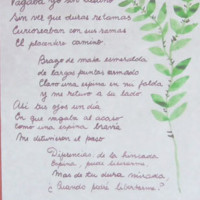 Vagaba yo sin destino
Sin ver que duras retamas
Curioseaban con sus ramas
El placentero camino.
Brazo de mata esmeralda
de largas puntas armado
Clavó una espina en mi falda
Y me retuvo a su lado
Así tus ojos un día
En que vagaba al acaso
como una espina bravía
Me detuvieron el paso
Diferencia de la hincada
Espina, pude librarme
Mas de tu dura mirada
¿Cuándo podré libertarme?